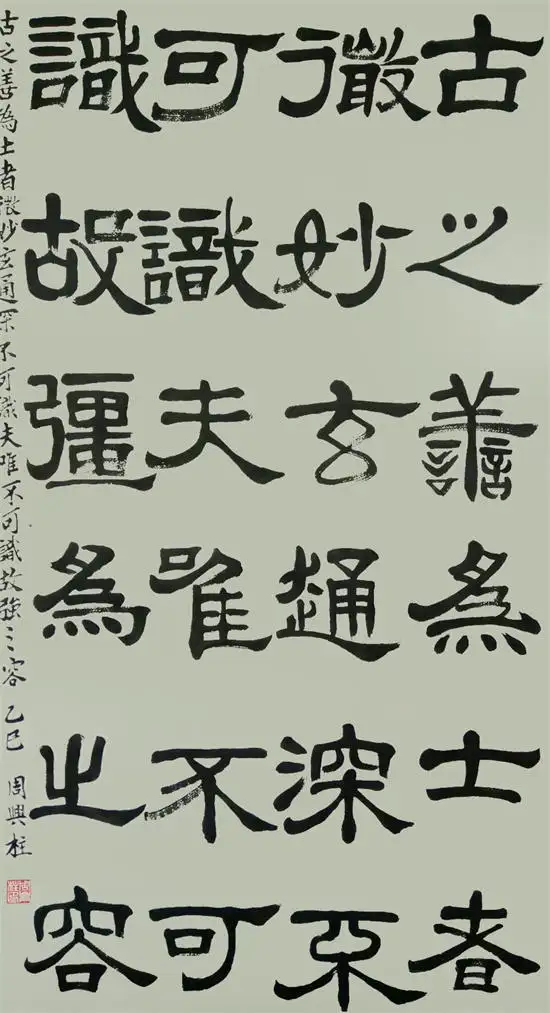 古之善為士者
微妙玄通深不
可識夫唯不可
識故彊為之容
古之善為士者微妙玄通深不可識夫唯不可識故強為之容 乙巳 周興柱